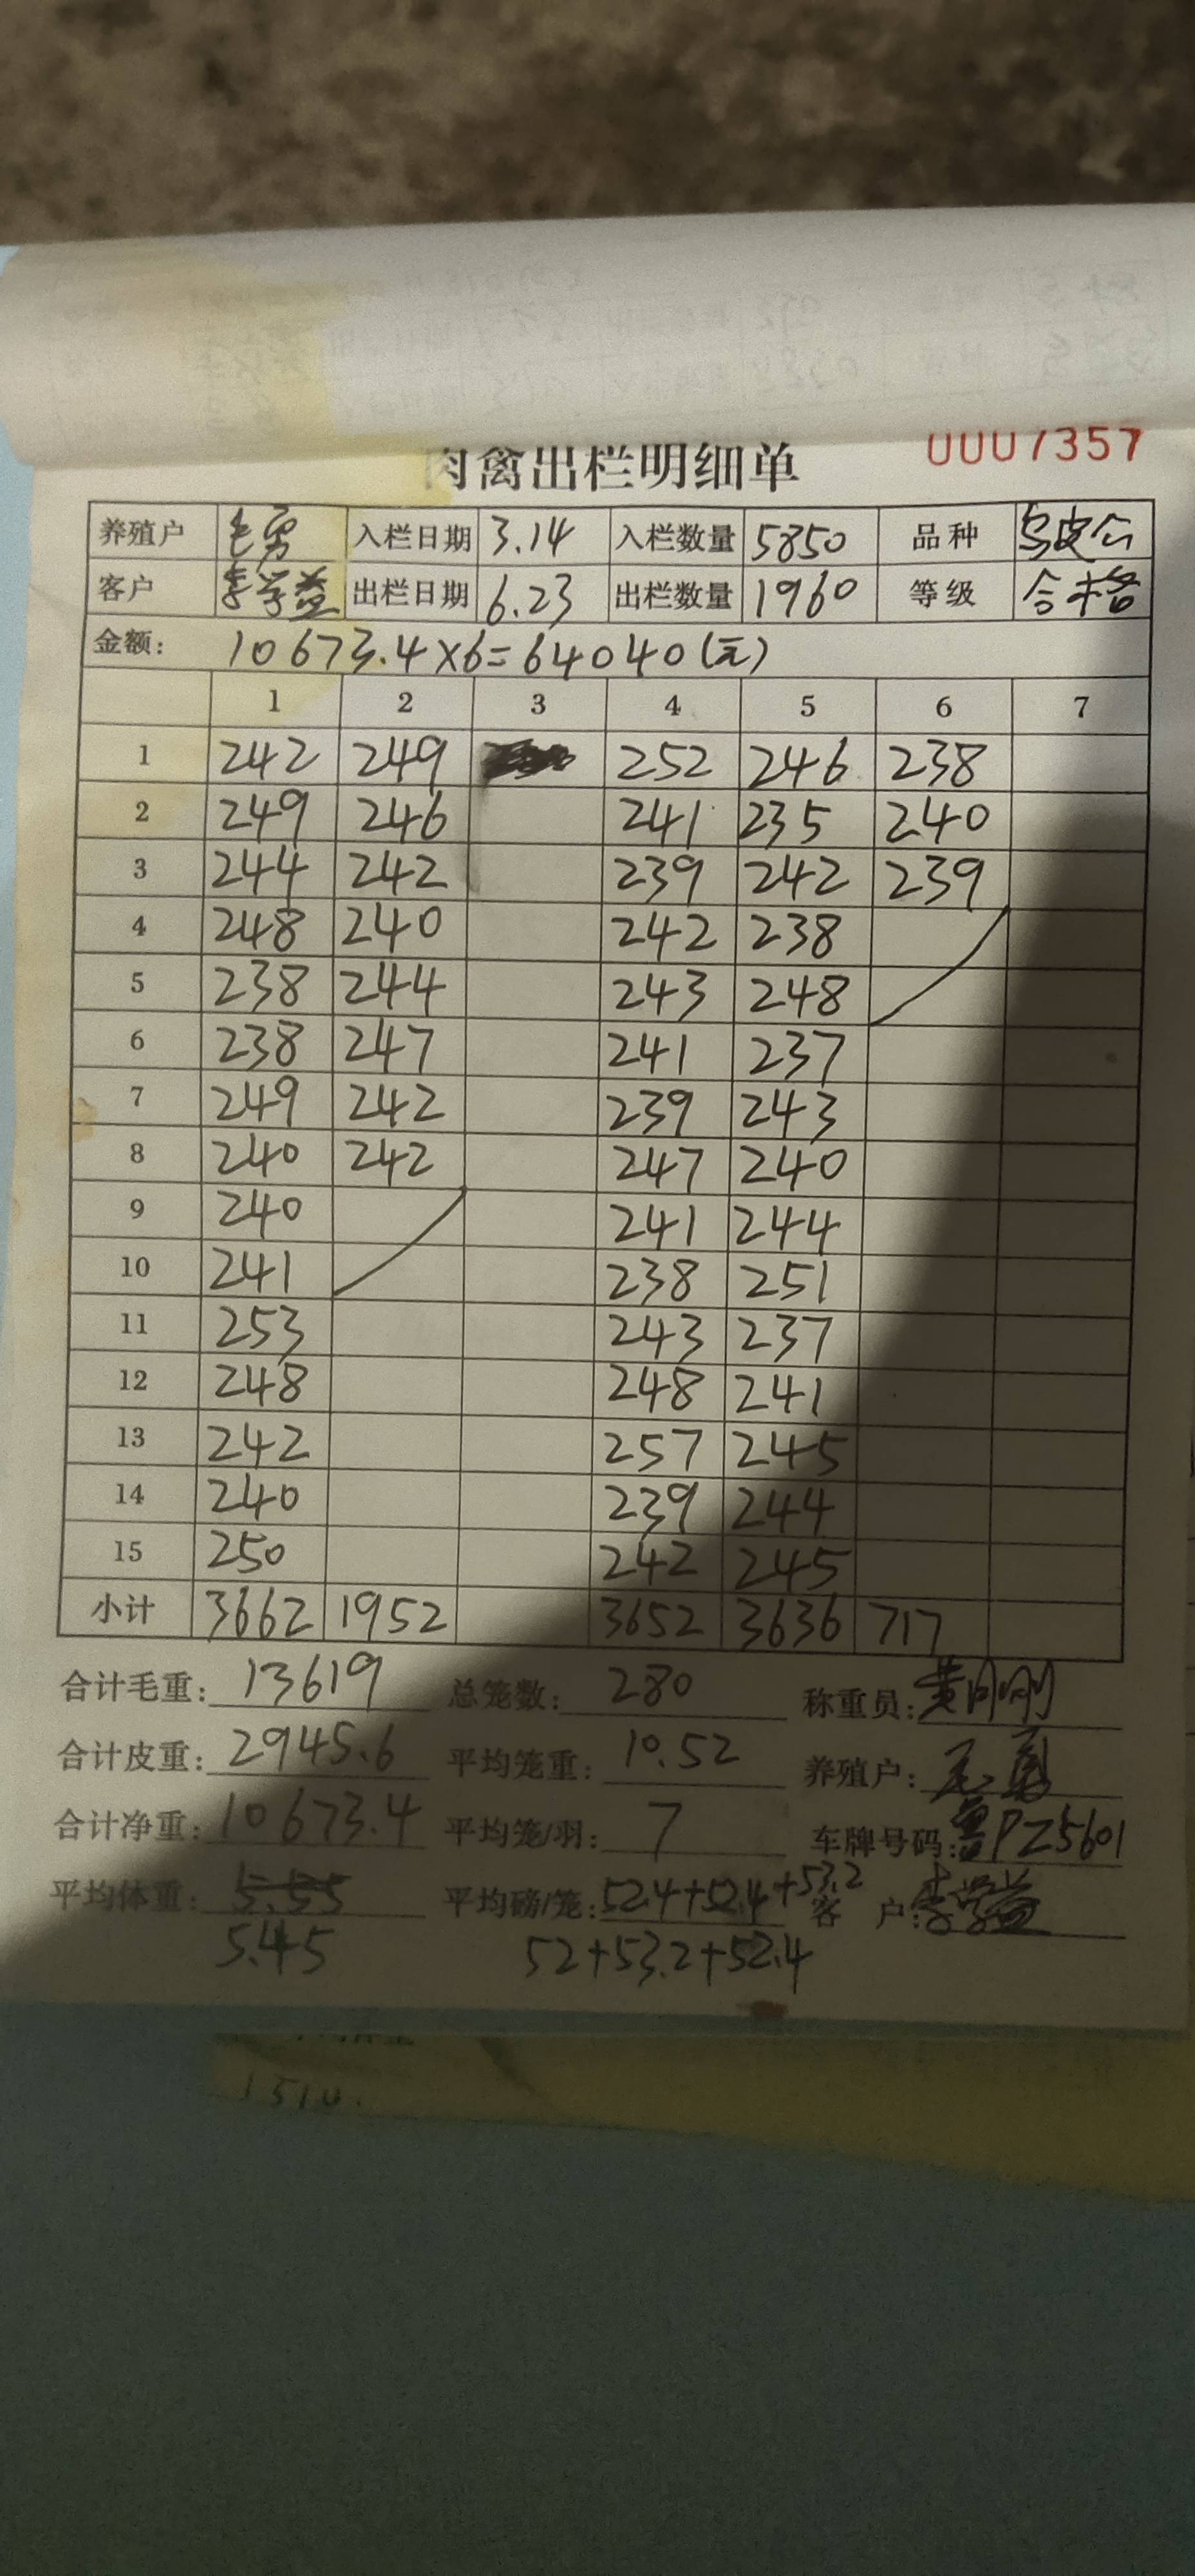 肉禽出栏明细单 0007357
养殖户 毛勇 入栏日期 3.14 入栏数量 5850 品种 乌皮公
客户 李学益 出栏日期 6.23 出栏数量 1960 等级 合格
金额: 10673.4×6=64040(元)
1 2 3 4 5 6 7
1 242 249 252 246 238
2 249 246 241 235 240
3 244 242 239 242 239
4 248 240 242 238
5 238 244 243 248
6 238 247 241 237
7 249 242 239 243
8 240 242 247 240
9 240 241 244
10 241 238 251
11 253 243 237
12 248 248 241
13 242 257 245
14 240 239 244
15 250 242 245
小计 3662 1952 3652 3636 717
合计毛重: 13619 总笼数: 280 称重员: 黄刚
合计皮重: 2945.6 平均笼重: 10.52 养殖户: 毛勇
合计净重: 10673.4 平均笼/羽: 7 车牌号码: 鲁PZ5601
平均体重: 5.55 平均磅/笼: 52.4+52.4+53.2 客户: 李学益
5.45 52+53.2+52.4